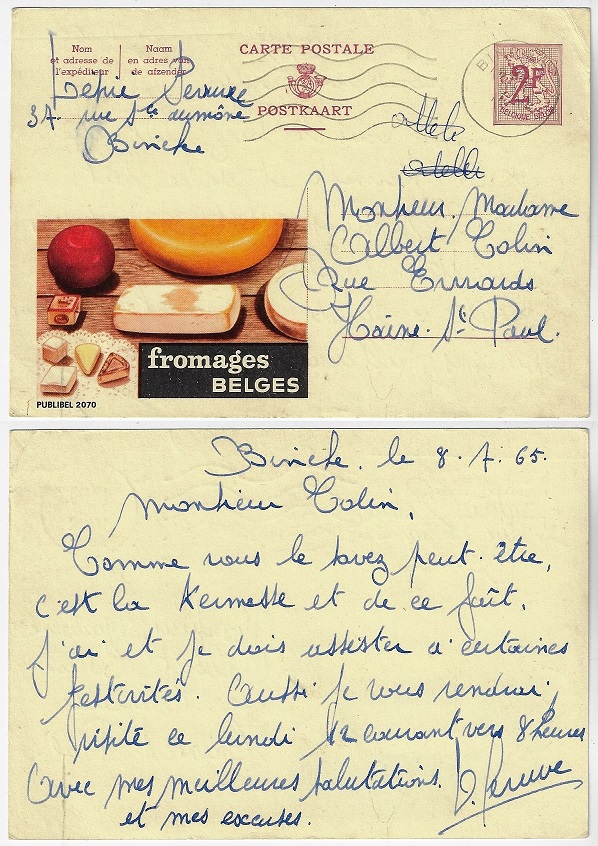 Nom
et adresse de
l'expéditeur
Naam
en adres van
de afzender
CARTE POSTALE
POSTKAART
2F
37 rue Ste
Binche
Monsieur. Madame
Albert Colin
Rue
Haine. St Paul.
fromages
BELGES
PUBLIBEL 2070
Binche, le 8.7.65.
Monsieur Colin,
Comme vous le savez peut-être,
c'est la Kermesse et de ce fait,
j'ai et je dois assister à certaines
festivités. Aussi je vous rendrai
visite ce lundi 12 courant vers 8 heures
Avec mes meilleures salutations.
et mes excuses.